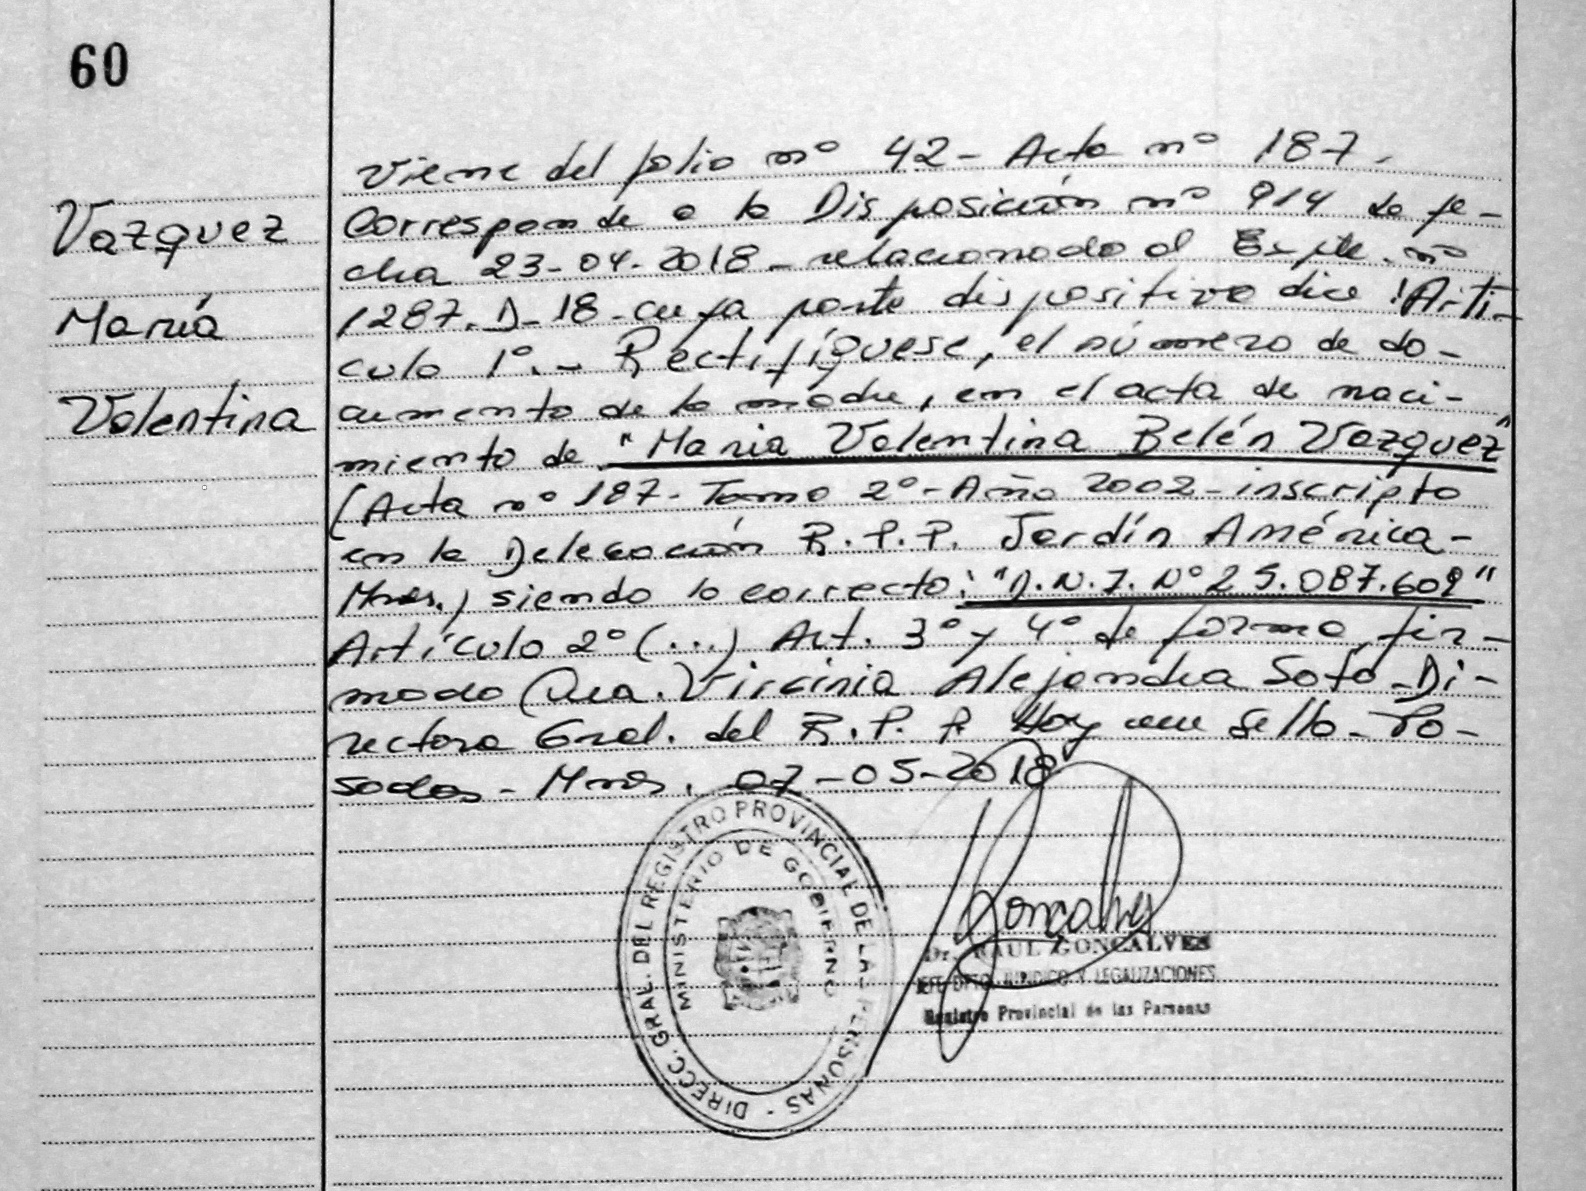 60
Vazquez
María
Valentina
Viene del folio nº 42 - Acta nº 187.
Corresponde a la Disposición nº 914 de fe-
cha 23-04-2018 - relacionado al Expte. nº
1287-D-18 - cuya parte dispositiva dice: "Artí-
culo 1º.- Rectifíquese, el número de do-
cumento de la madre, en el acta de naci-
miento de "Maria Valentina Belén Vazquez"
(Acta nº 187 - Tomo 2º - Año 2002 - inscripto
en la Delegación R.P.P. Jardín América -
Mnes.) siendo lo correcto: "D.N.I. Nº 25.087.609"
Artículo 2º (...) Art. 3º y 4º de forma, fir-
mado Virginia Alejandra Soto - Di-
rectora Gral. del R.P.P. Hay un sello - Po-
sadas - Mnes. 07-05-2018
DIRECC. GRAL. DEL REGISTRO PROVINCIAL DE LAS PERSONAS -
MINISTERIO DE GOBIERNO
Goncalves
Dr. RAUL GONCALVES
JEFE DPTO. JURIDICO Y LEGALIZACIONES
Registro Provincial de las Personas